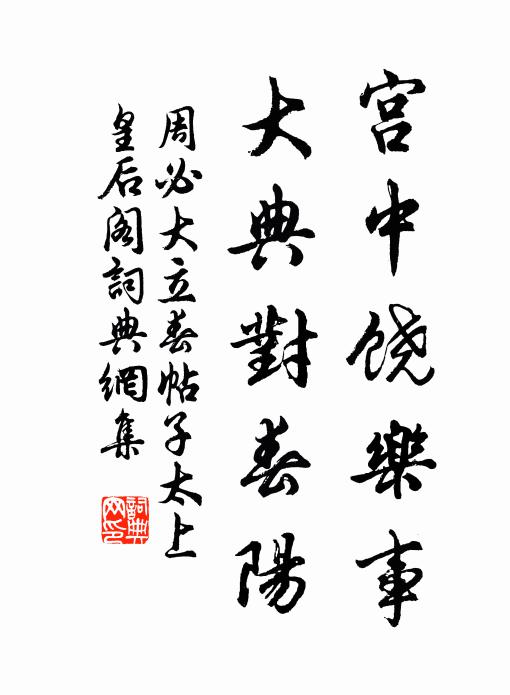 宫中饶樂事
大典對春陽
周必大立春帖子太上
皇后阁詞典網集
詞典網印